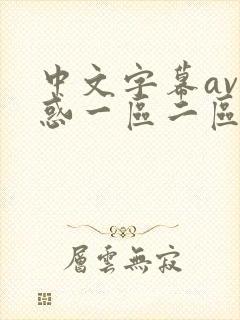 中文字幕av
惑一區二區
層雲無寂